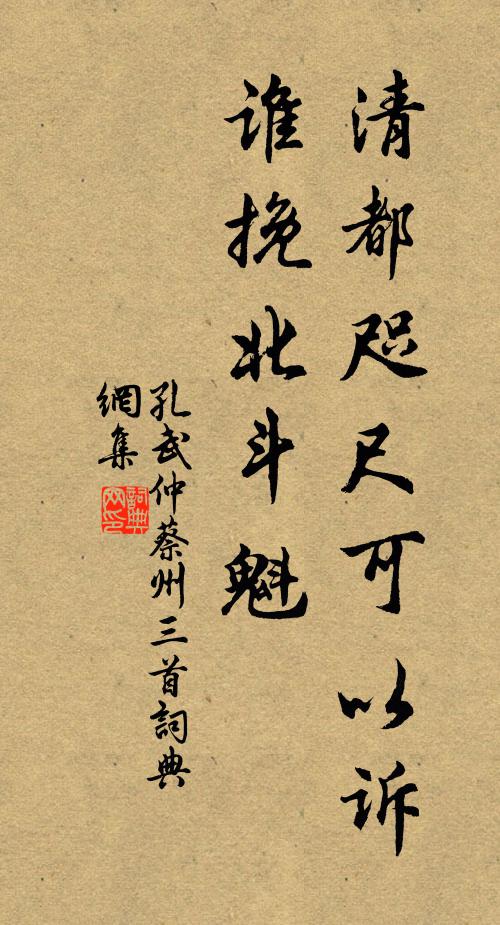 清都咫尺可以诉
谁挽北斗魁
孔武仲蔡州三首詞典
網集
詞典網印